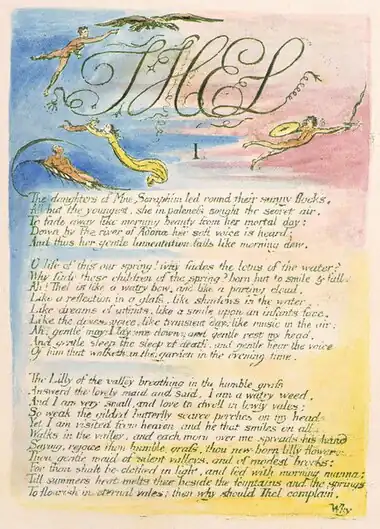 THEL
1
The daughters of Mne Seraphim led round their sunny flocks,
All but the youngest, she in paleness sought the secret air,
To fade away like morning beauty from her mortal day:
Down by the river of Adona her soft voice is heard:
And thus her gentle lamentation falls like morning dew.
O life of this our spring! why fades the lotus of the water?
Why fade these children of the spring? born but to smile & fall.
Ah! Thel is like a watry bow, and like a parting cloud,
Like a reflection in a glass, like shadows in the water,
Like dreams of infants, like a smile upon an infants face,
Like the doves voice, like transient day, like music in the air;
Ah! gentle may I lay me down, and gentle rest my head,
And gentle sleep the sleep of death, and gentle hear the voice
Of him that walketh in the garden in the evening time.
The Lilly of the valley breathing in the humble grass
Answerd the lovely maid and said; I am a watry weed,
And I am very small, and love to dwell in lowly vales;
So weak the gilded butterfly scarce perches on my head.
Yet I am visited from heaven and he that smiles on all
Walks in the valley, and each morn over me spreads his hand
Saying, rejoice thou humble grass, thou new-born lilly flower,
Thou gentle maid of silent valleys, and of modest brooks:
For thou shalt be clothed in light, and fed with morning manna:
Till summers heat melts thee beside the fountains and the springs
To flourish in eternal vales: then why should Thel complain,
Why